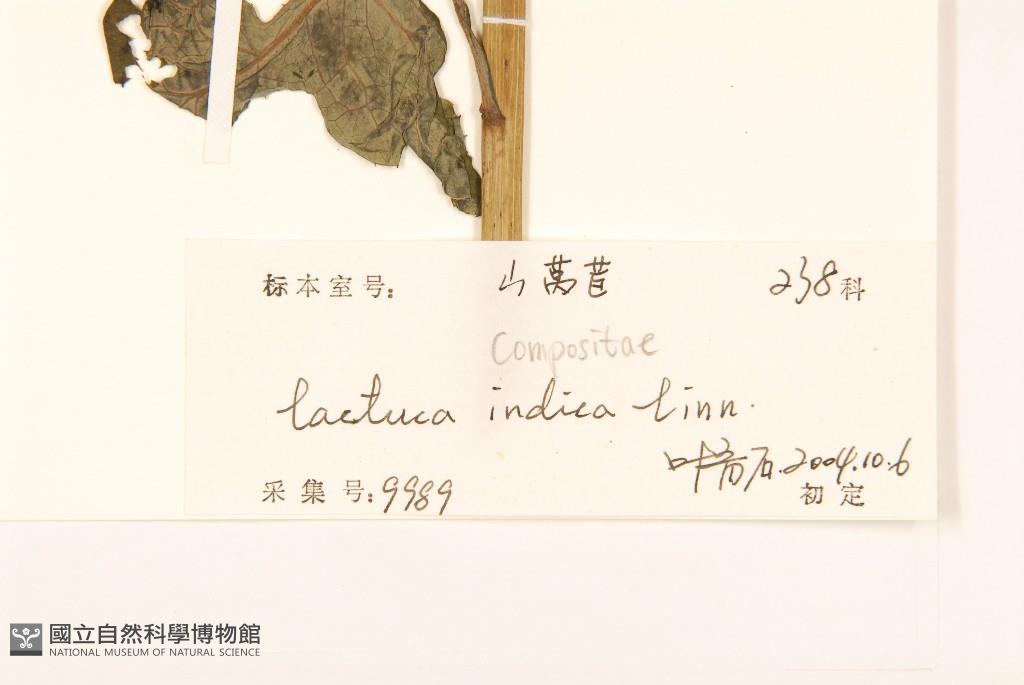 标本室号: 山萵苣 238科
Compositae
lactuca indica linn.
叶 石.2004.10.6
采集号:9989 初定
國立自然科學博物館
NATIONAL MUSEUM OF NATURAL SCIENCE